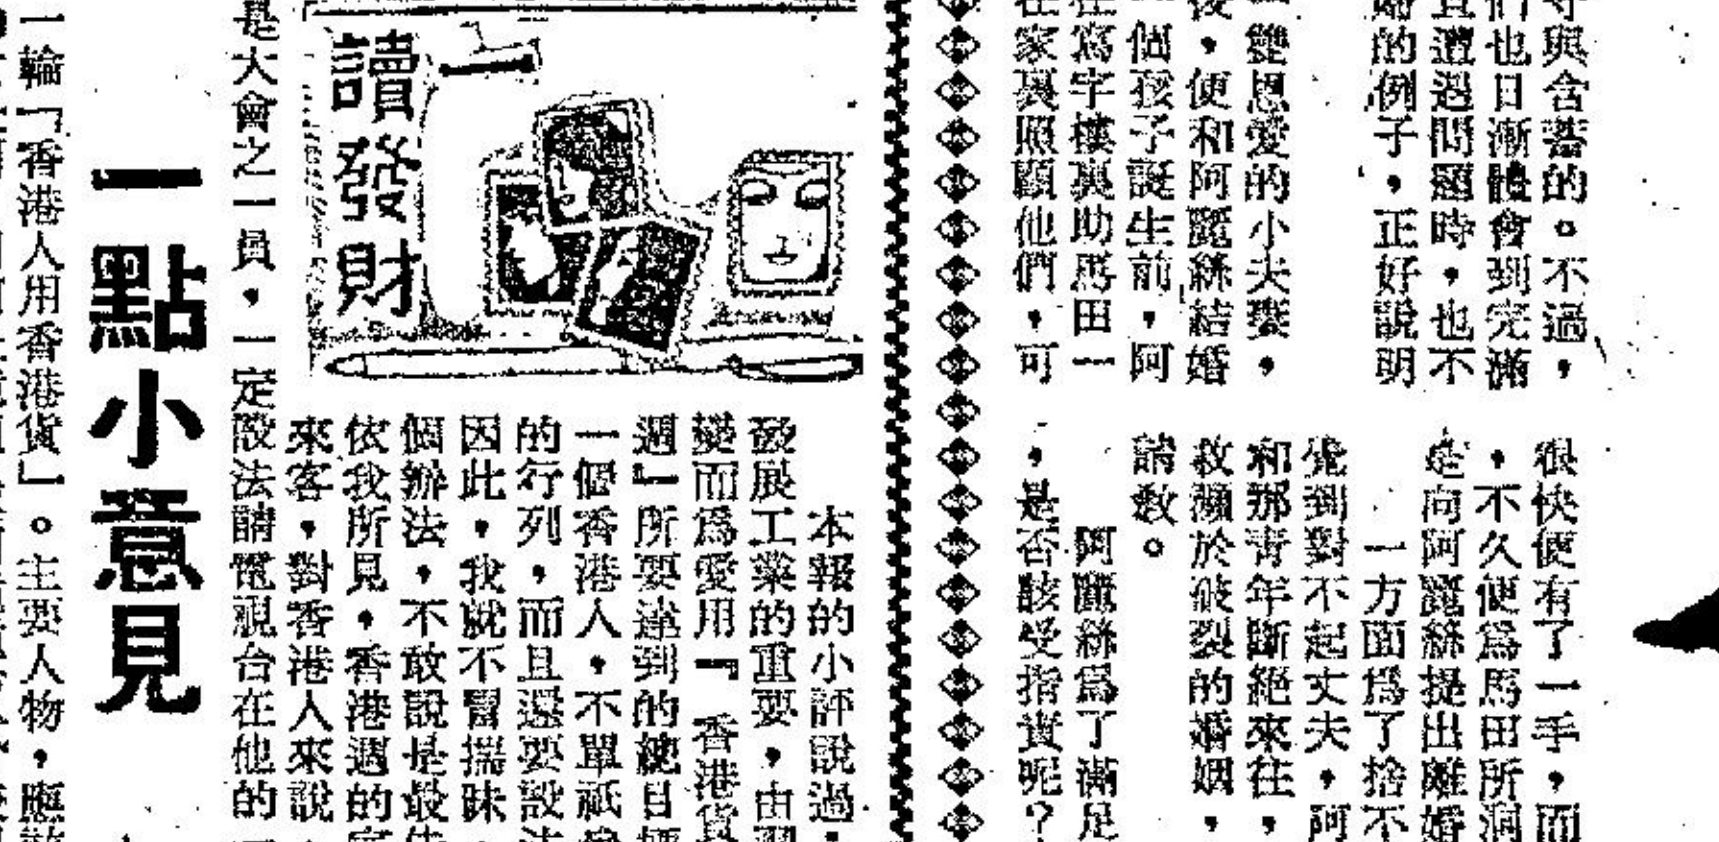 守與含蓄的。不過，
們也日漸體會到完滿
直遭遇問題時，也不
的例子，正好說明
一雙恩愛的小夫妻，
後，便和阿麗絲結婚
個孩子誕生前，阿
在寫字樓裏助馬田一
在家裏照顧他們，可
很快便有了一手，而
，不久便爲馬田所洞
是向阿麗絲提出離婚
一方面爲了捨不
覺到對不起丈夫，阿
和那青年斷絕來往，
救瀕於破裂的婚姻，
請教。
阿麗絲爲了滿足
，是否該受指責呢？
讀一
發
財
本報的小評說過，
發展工業的重要，由
變而爲愛用『香港貨
週』所要達到的總目標
一個香港人，不單祇
的行列，而且還要設法
因此，我就不冒揣昧
個辦法，不敢說是最佳
依我所見，香港週的
來客，對香港人來說，
是大會之一員，一定設法請電視台在他的
一點小意見
一輪「香港人用香港貨」。主要人物，應